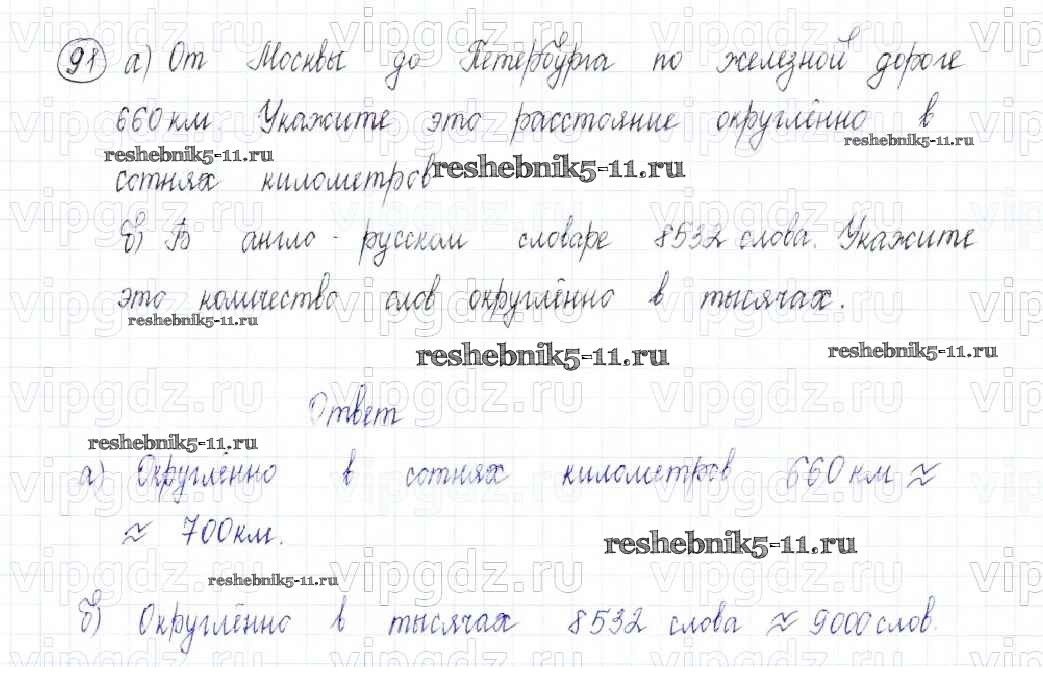 98 а) От Москвы до Петербурга по железной дороге
660 км. Укажите это расстояние округлённо в
reshebnik5-11.ru
reshebnik5-11.ru
reshebnik5-11.ru
сотнях километров
б) В англо-русском словаре 8532 слова. Укажите
это количество слов округлённо в тысячах.
reshebnik5-11.ru
reshebnik5-11.ru
reshebnik5-11.ru
Ответ
reshebnik5-11.ru
а) Округлённо в сотнях километров 660 км ≈
≈ 700 км.
reshebnik5-11.ru
reshebnik5-11.ru
б) Округлённо в тысячах 8532 слова ≈ 9000 слов.
vipgdz.ru